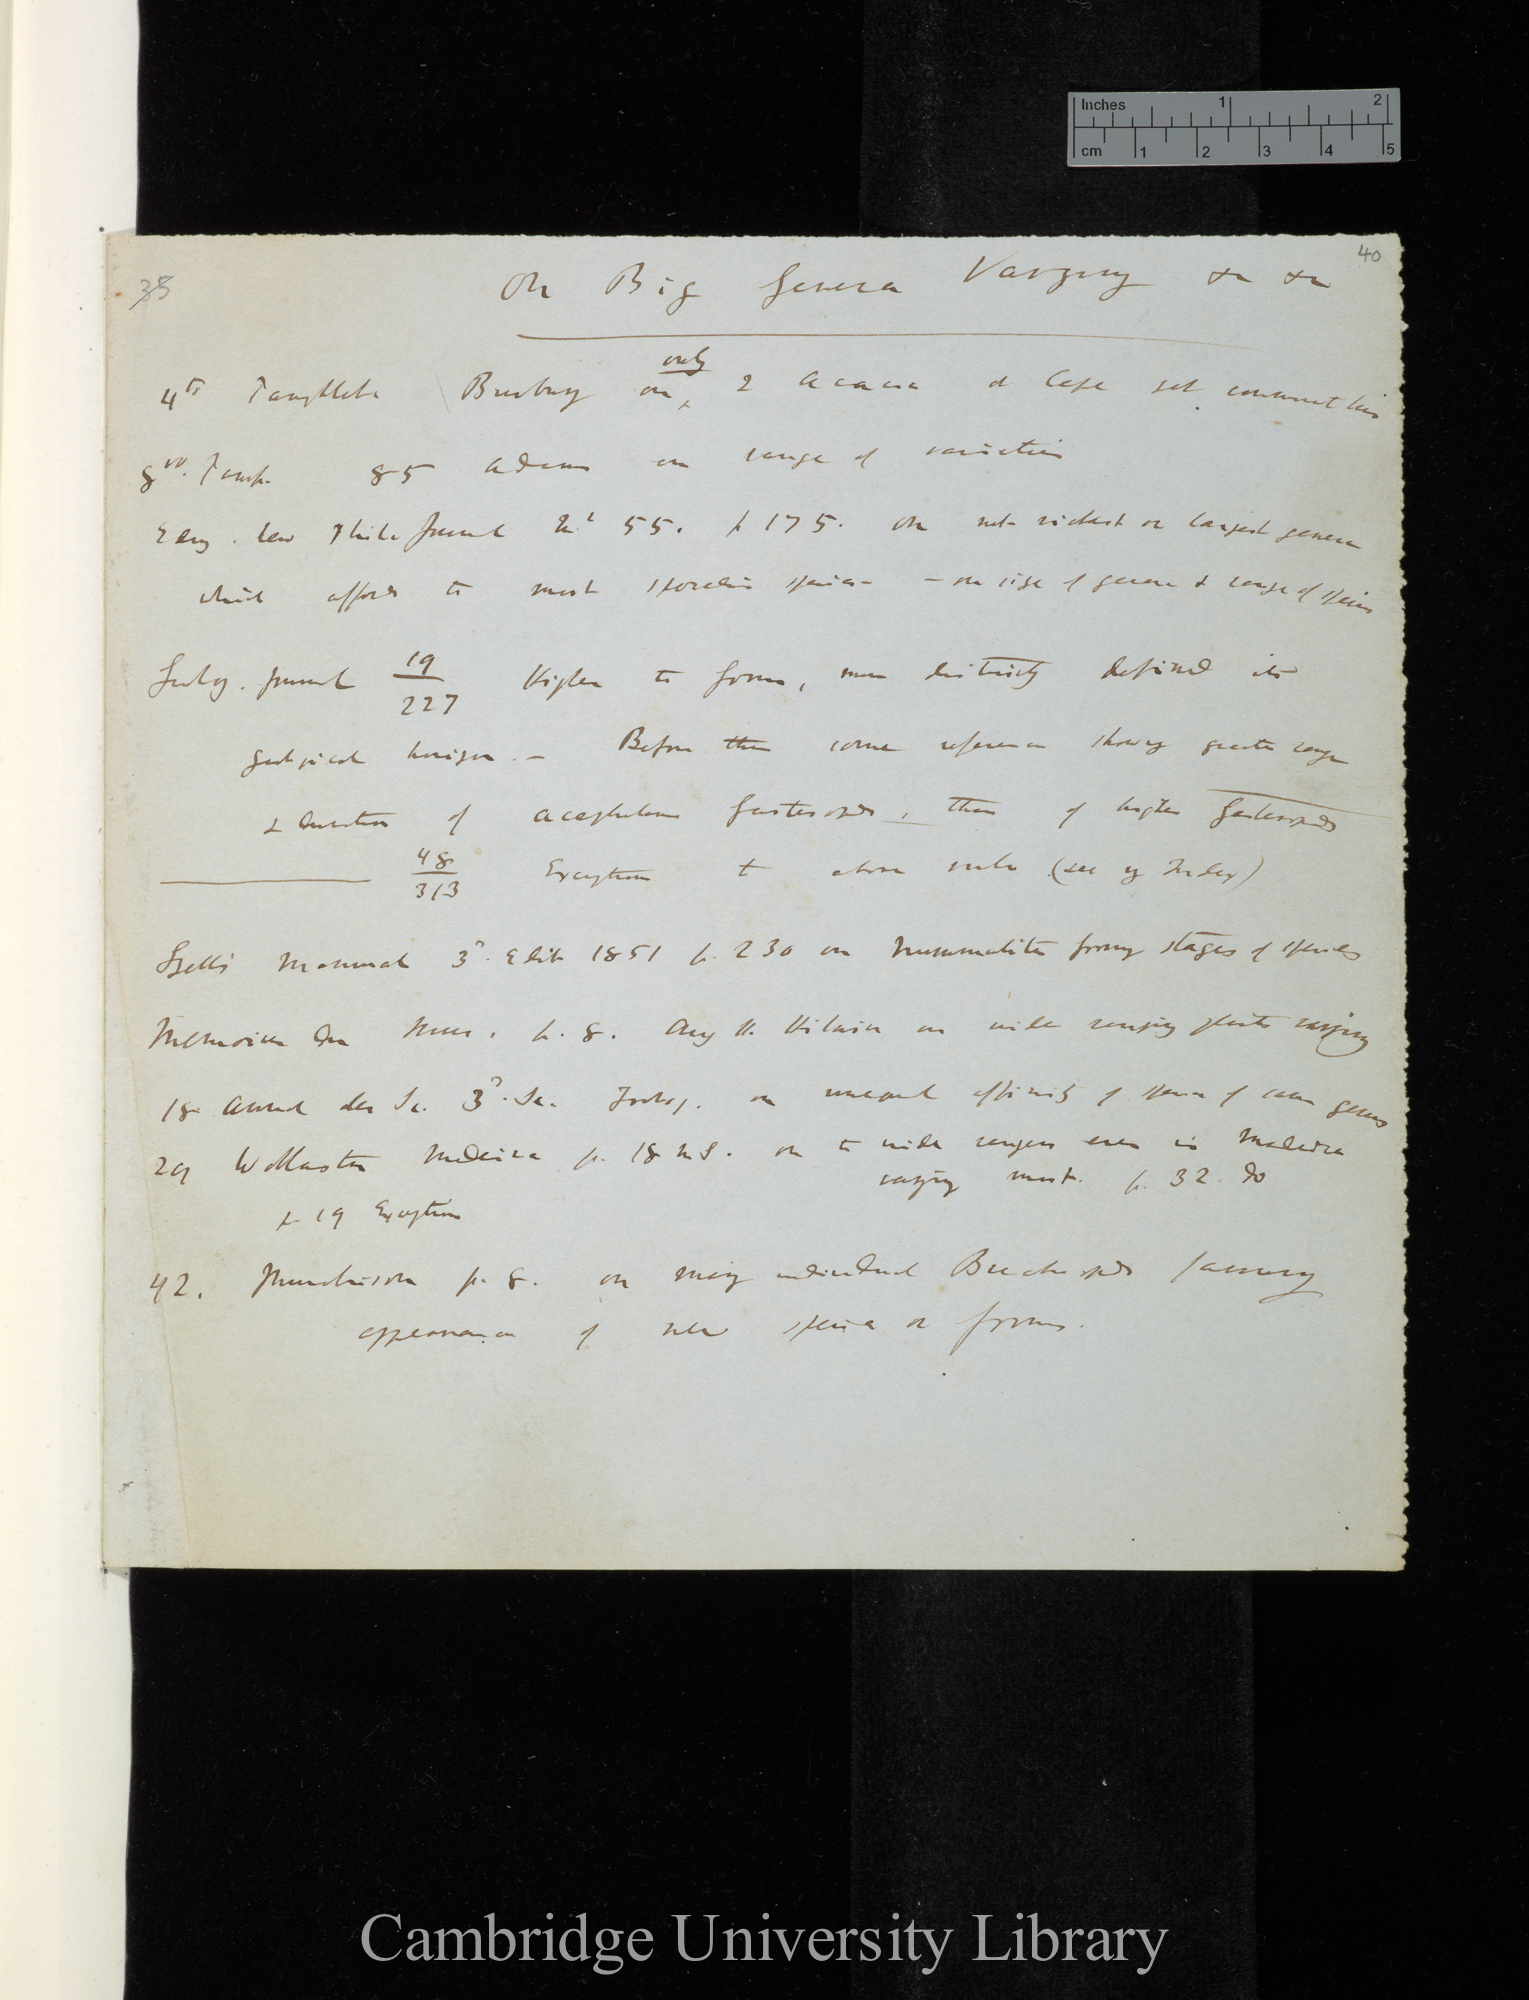 Inches 1 2
cm 1 2 3 4 5
40
35
On Big Genera Varying &c &c
only
4to Pamphlets Bunbury on 2 Acacia at Cape yet commonest trees
8vo. Pamph. 85 Adams on range of varieties
Edin. New Phil. Journal No 55. p 175. On not richest or largest genera
which affords the most sporadic species — on size of genera & range of species
Geolog. Journal 19/227 Higher the forms, more distinctly defined its
geological horizon. — Before this some reference showing greater range
& duration of acephalous Gasteropods, than of higher Gasteropods
48/313 Exceptions to above rule (see my Index)
Lyell's Manual 3d. Edit 1851 p. 230 on Nummulites forming stages of species
Memoires du Mus. p. 8. Aug St. Hilaire on wide ranging plants varying
18 Annal des Sc. 3d. Se. Zoolog. on unequal affinity of species of same genus
29 Wollaston Madeira p. 18 M.S. on the wide rangers even in Madeira
varying most. p. 32. do
p. 19 Exceptions
42. Murchison p. 8. on many individual Brachiopods favouring
appearance of new species or forms.
Cambridge University Library